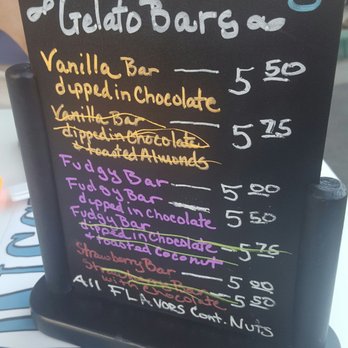 Gelato Bars
Vanilla Bar — 5 50
dipped in Chocolate
Vanilla Bar — 5 75
dipped in Chocolate
+ toasted Almonds
Fudgy Bar — 5 00
Fudgy Bar — 5 50
dipped in chocolate
Fudgy Bar
dipped in Chocolate — 5 75
+ toasted coconut
Strawberry Bar — 5 00
Strawberry Bar
with Chocolate — 5 50
All FLAVORS Cont. Nuts